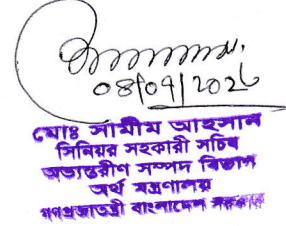 08/07/2026
মোঃ সামীম আহসান
সিনিয়র সহকারী সচিব
অভ্যন্তরীণ সম্পদ বিভাগ
অর্থ মন্ত্রণালয়
গণপ্রজাতন্ত্রী বাংলাদেশ সরকার